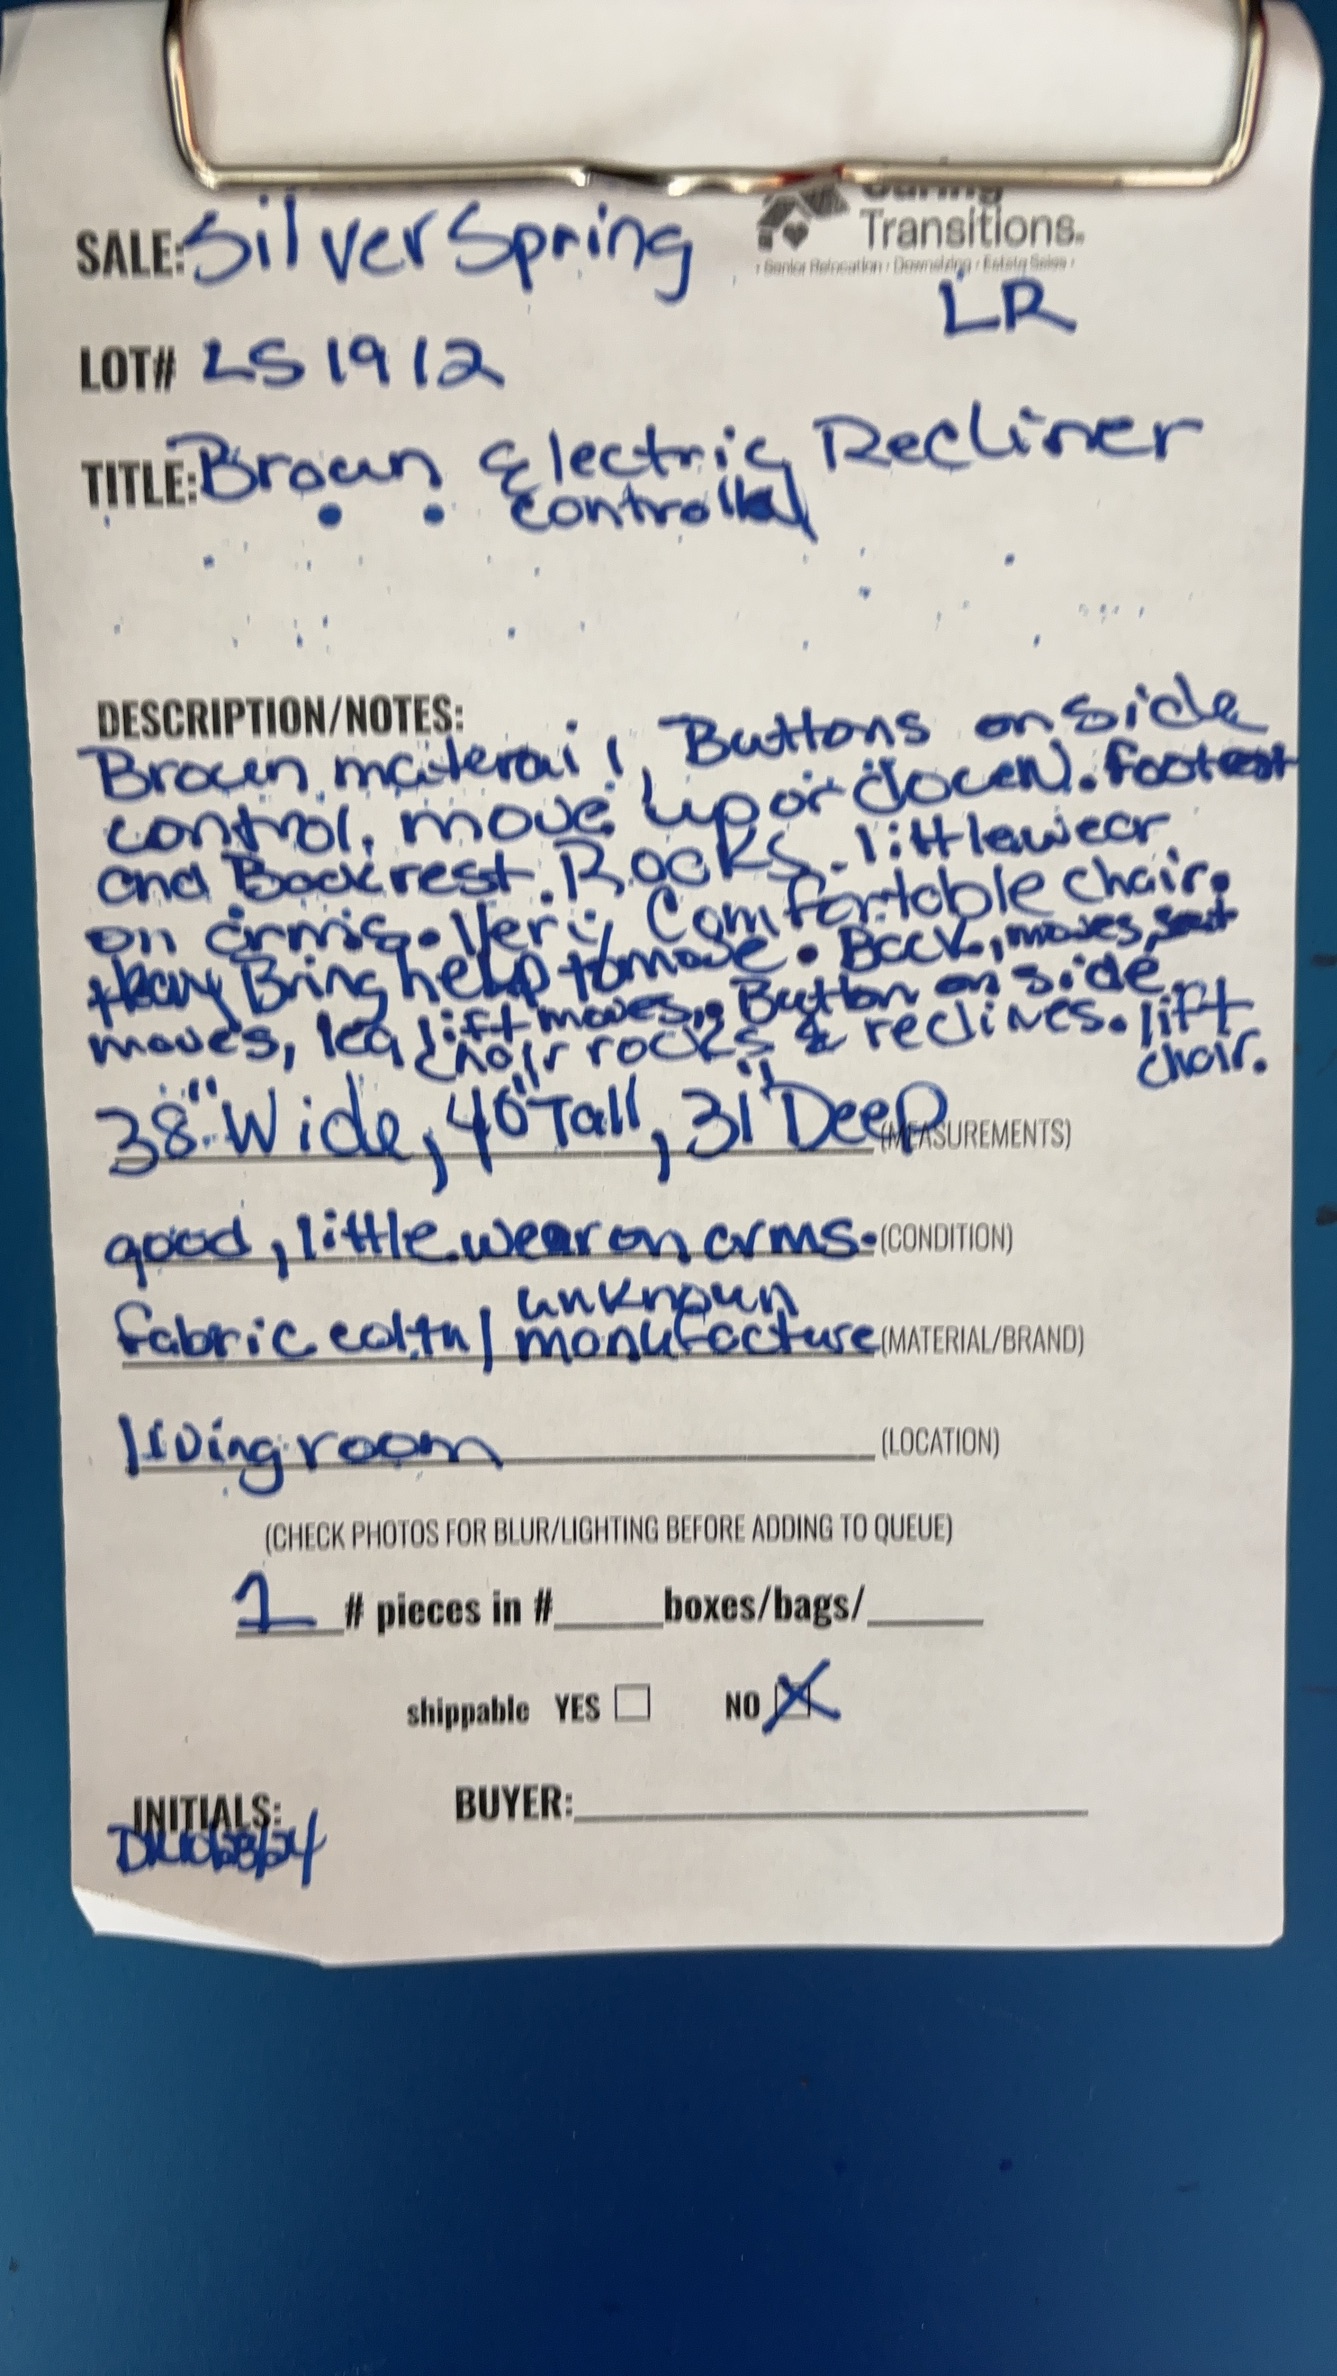 Transitions.
SALE: Silver Spring
· Senior Relocation · Downsizing · Estate Sales ·
LR
LOT# LS1912
TITLE: Brown Electric Recliner
controlled
DESCRIPTION/NOTES:
Brown materail, Buttons on side
control, move up or down. Footrest
and Backrest. Rocks. little wear
on arms. Very Comfortable chair.
Heavy Bring help to move. Back, moves, seat
moves, leg lift moves, Button on side
chair rocks & reclines. lift
chair.
38" Wide, 40" Tall, 31" Deep (MEASUREMENTS)
good, little wear on arms. (CONDITION)
unknown
fabric / manufacture (MATERIAL/BRAND)
living room (LOCATION)
(CHECK PHOTOS FOR BLUR/LIGHTING BEFORE ADDING TO QUEUE)
1 # pieces in #_____boxes/bags/_____
shippable YES NO X
INITIALS: BUYER:
10/28/24